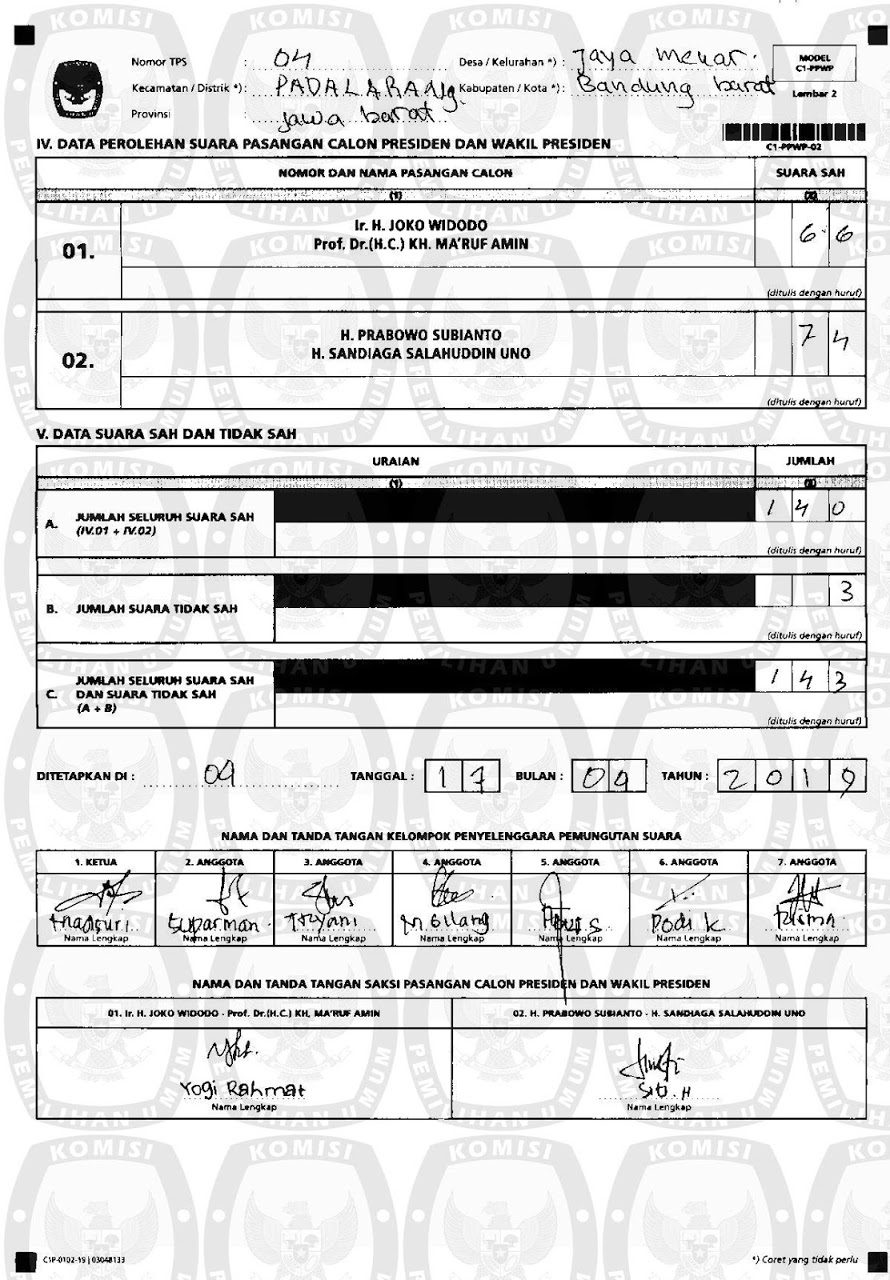 MODEL
C1-PPWP
Lembar 2
Nomor TPS : 04 Desa / Kelurahan *) : Jaya Mekar
Kecamatan / Distrik *) : PADALARANG Kabupaten / Kota *) : Bandung barat
Provinsi : jawa barat
C1-PPWP-02
IV. DATA PEROLEHAN SUARA PASANGAN CALON PRESIDEN DAN WAKIL PRESIDEN
NOMOR DAN NAMA PASANGAN CALON SUARA SAH
(1) (2)
01. Ir. H. JOKO WIDODO 6 6
Prof. Dr.(H.C.) KH. MA'RUF AMIN
(ditulis dengan huruf)
02. H. PRABOWO SUBIANTO 7 4
H. SANDIAGA SALAHUDDIN UNO
(ditulis dengan huruf)
V. DATA SUARA SAH DAN TIDAK SAH
URAIAN JUMLAH
(1) (2)
A. JUMLAH SELURUH SUARA SAH 1 4 0
(IV.01 + IV.02)
(ditulis dengan huruf)
B. JUMLAH SUARA TIDAK SAH 3
(ditulis dengan huruf)
C. JUMLAH SELURUH SUARA SAH 1 4 3
DAN SUARA TIDAK SAH
(A + B)
(ditulis dengan huruf)
DITETAPKAN DI : 04 TANGGAL : 1 7 BULAN : 0 4 TAHUN : 2 0 1 9
NAMA DAN TANDA TANGAN KELOMPOK PENYELENGGARA PEMUNGUTAN SUARA
1. KETUA 2. ANGGOTA 3. ANGGOTA 4. ANGGOTA 5. ANGGOTA 6. ANGGOTA 7. ANGGOTA
Suparman Tryani M Gilang Dodi K Risma
Nama Lengkap Nama Lengkap Nama Lengkap Nama Lengkap Nama Lengkap Nama Lengkap Nama Lengkap
NAMA DAN TANDA TANGAN SAKSI PASANGAN CALON PRESIDEN DAN WAKIL PRESIDEN
01. Ir. H. JOKO WIDODO - Prof. Dr.(H.C.) KH, MA'RUF AMIN 02. H. PRABOWO SUBIANTO - H. SANDIAGA SALAHUDDIN UNO
Yogi Rahmat Siti. H
Nama Lengkap Nama Lengkap
C1P-0102-19 | 03048133 *) Coret yang tidak perlu